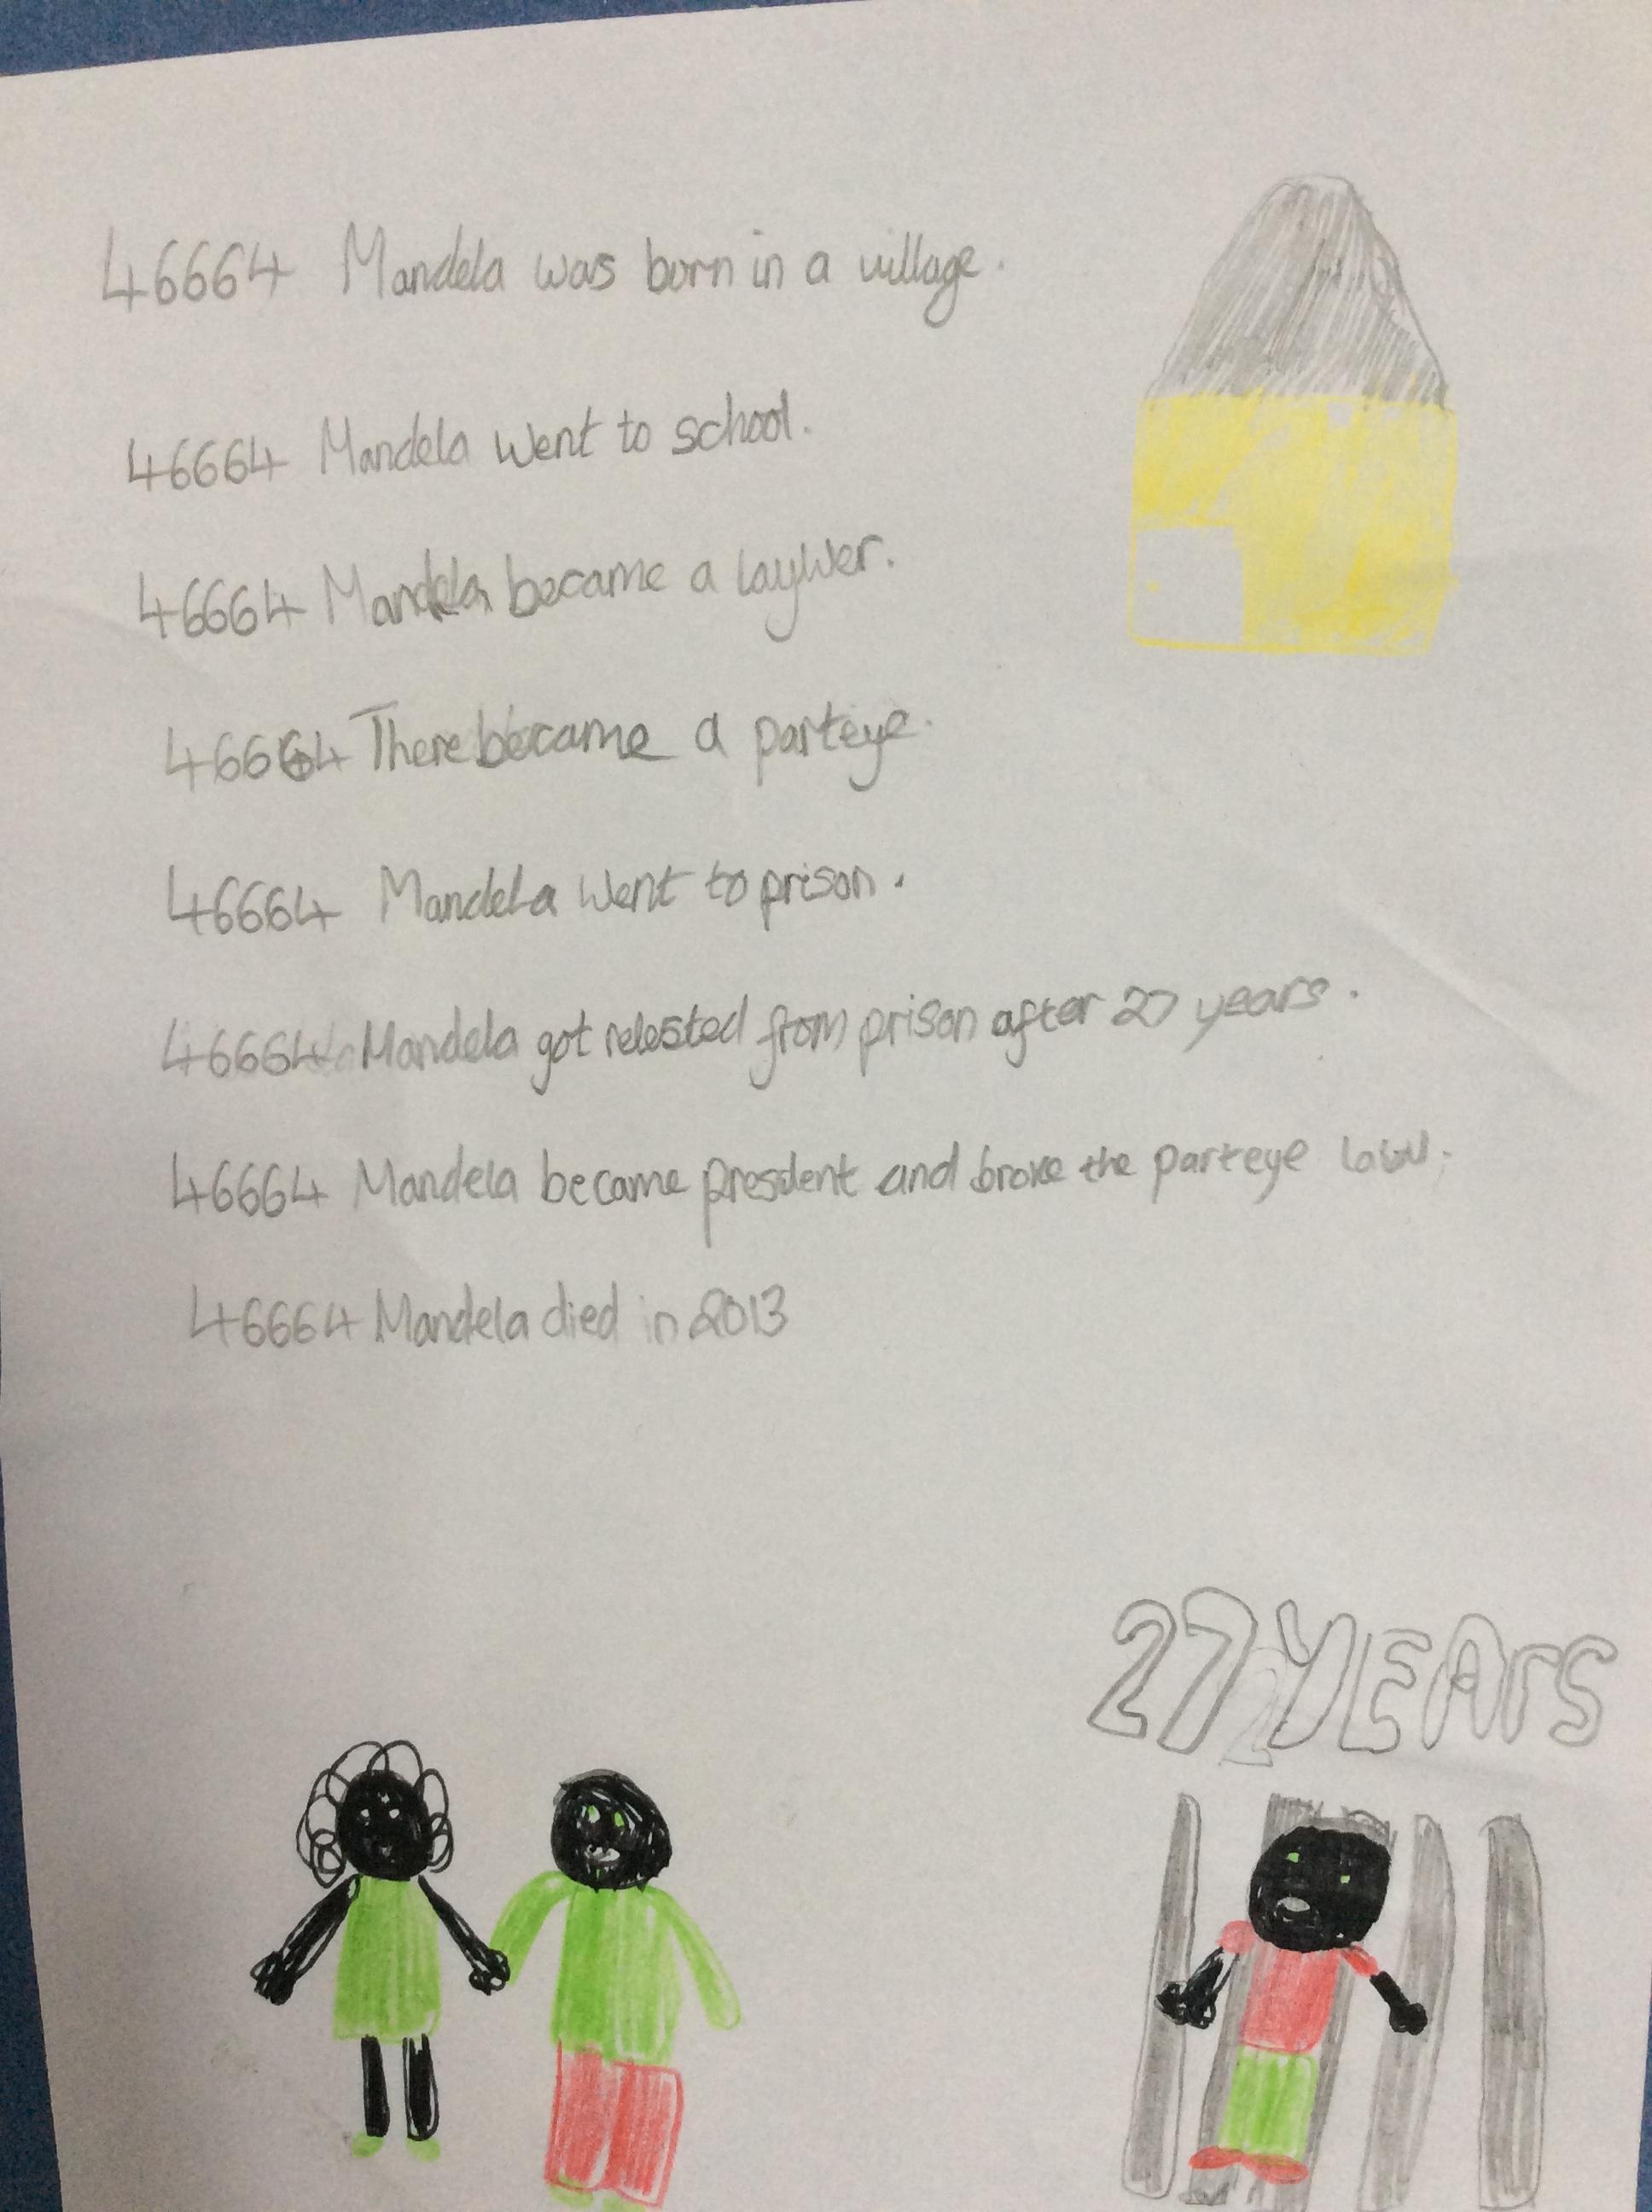 46664 Mandela was born in a village.
46664 Mandela went to school.
46664 Mandela became a laywer.
46664 There became a parteye.
46664 Mandela went to prison.
46664 Mandela got relested from prison after 27 years.
46664 Mandela became presdent and broke the parteye law.
46664 Mandela died in 2013
27 YEArS